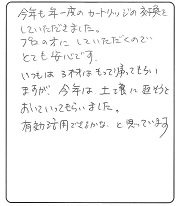 今年も年一度のカートリッジの交換を
していただきました。
プロの方にしていただくので
とても安心です。
いつもは 3本はもって帰ってもらい
ますが 今年は 土で養に 近そうと
おいていってもらいました。
有効活用できるかな と思っています